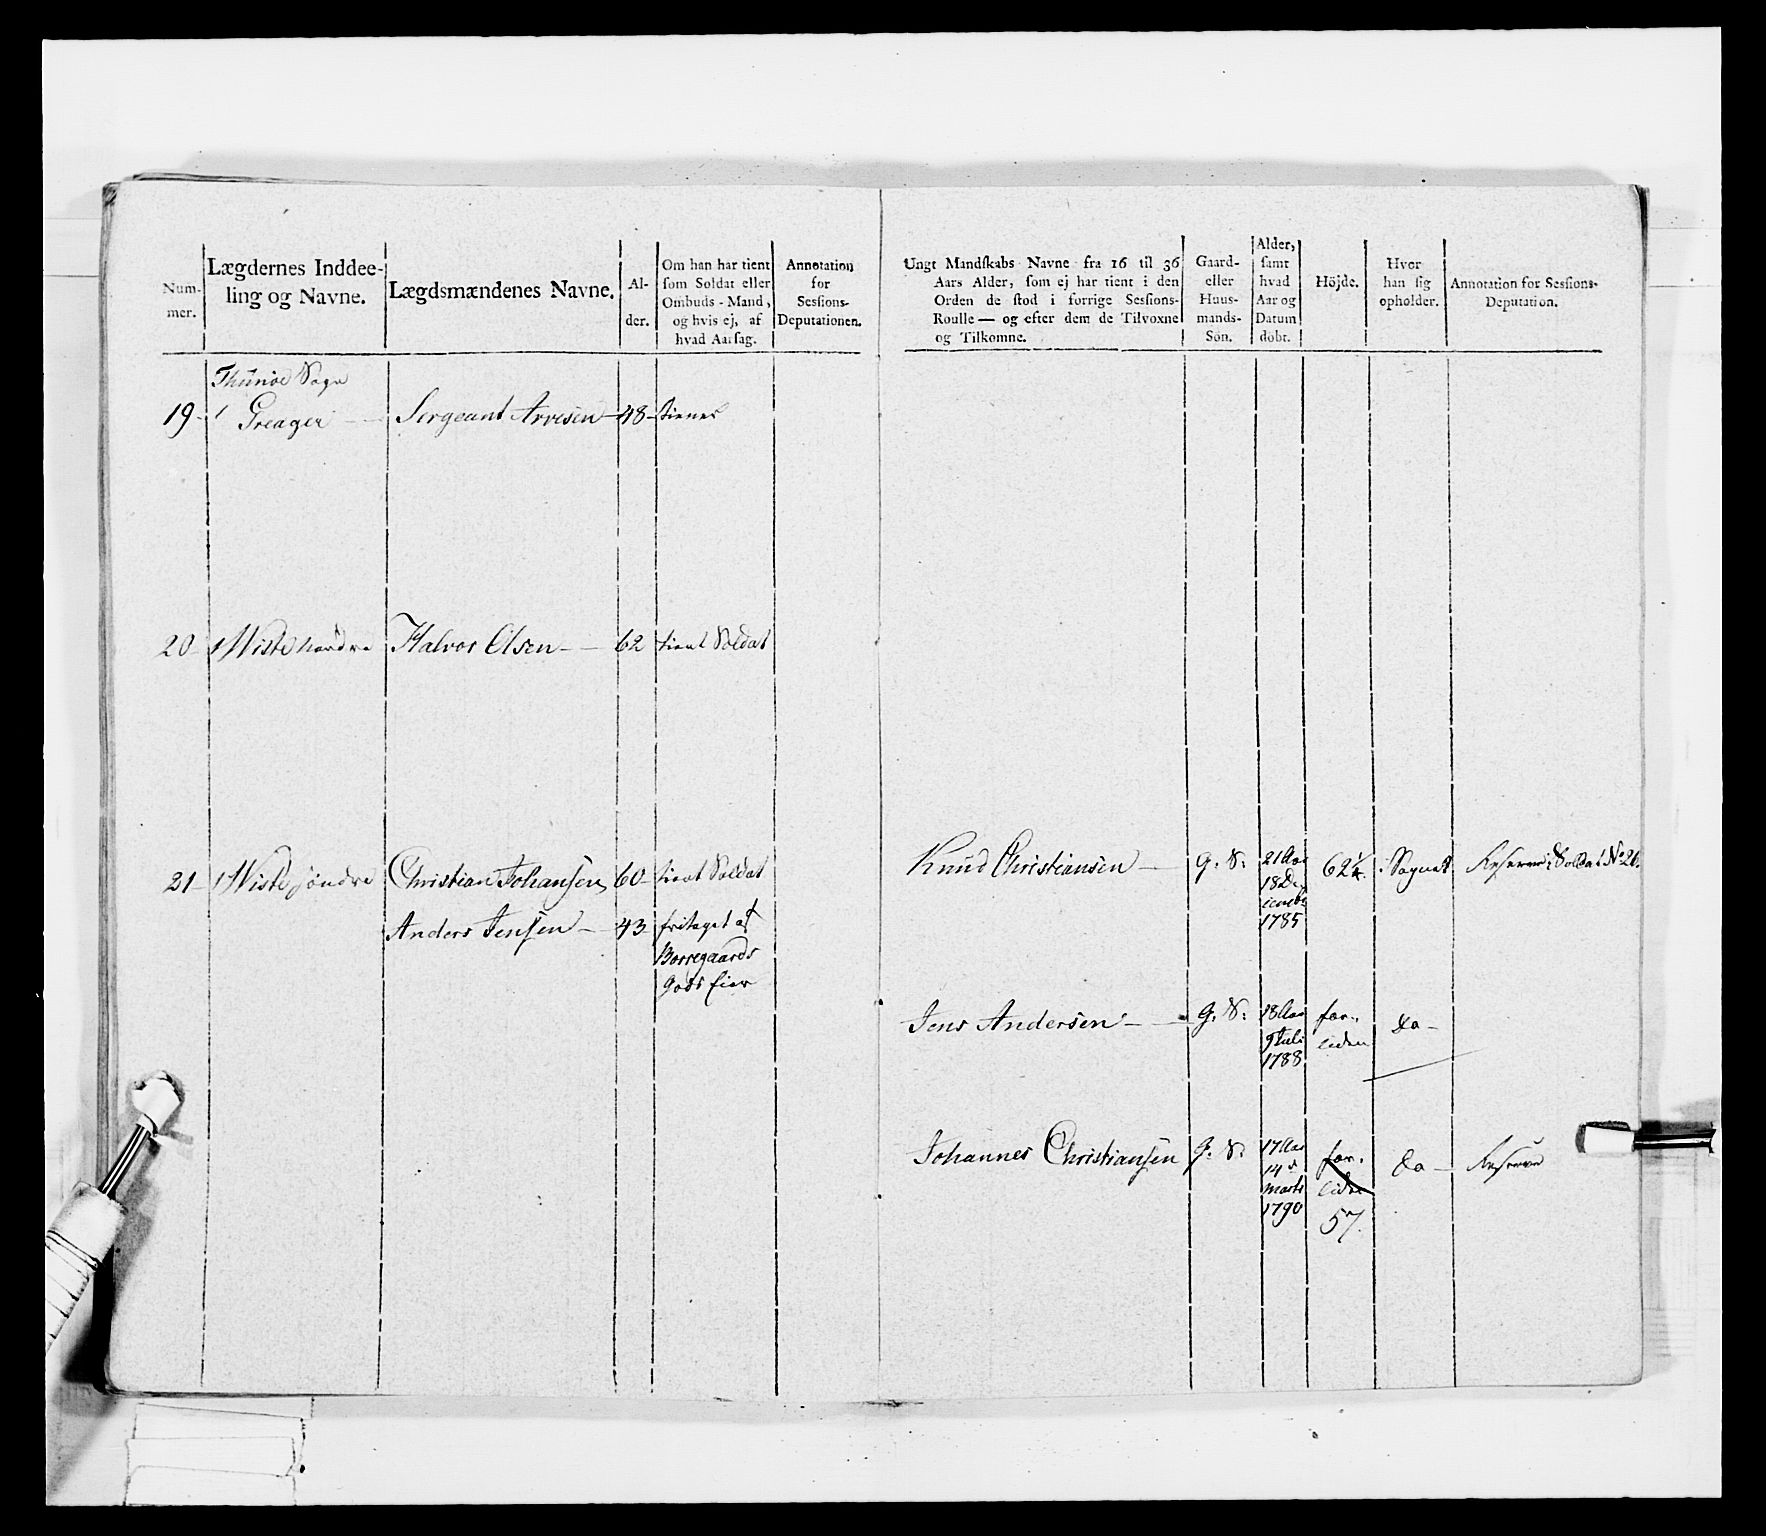 Num-
mer.
Lægdernes Inddee-
ling og Navne.
Lægdsmændenes Navne.
Al-
der.
Om han har tient
som Soldat eller
Ombuds-Mand,
og hvis ej, af
hvad Aarsag.
Annotation
for
Sessions-
Deputationen.
Thunøe Sogn
19- 1 Greager - - Sergeant Arvesen - 48- tiener
20- 1 Wiste nordre Halvor Olsen - - 62 tient Soldat
21- 1 Wiste søndre Christian Johansen 60- tient Soldat
Anders Jensen - 43 fritaget af
Borregaards
Gods Eier
Ungt Mandskabs Navne fra 16 til 36
Aars Alder, som ej har tient i den
Orden de stod i forrige Sessions-
Roulle — og efter dem de Tilvoxne
og Tilkomne.
Gaard-
eller
Huus-
mands-
Søn.
Alder,
samt
hvad
Aar og
Datum
døbt.
Höjde.
Hvor
han sig
opholder.
Annotation for Sessions-
Deputation.
Knud Christiansen - G. S: 21 Aar 62 1/4. Sognet Reserve Soldat No 20.
18 De-
cembr
1785
Jens Andersen - - G. S: 18 Aar for- do -
9 Juli liden
1788
Johannes Christiansen G. S: 17 Aar for- do - Reserve
14 d liden
Marts
1790 57.